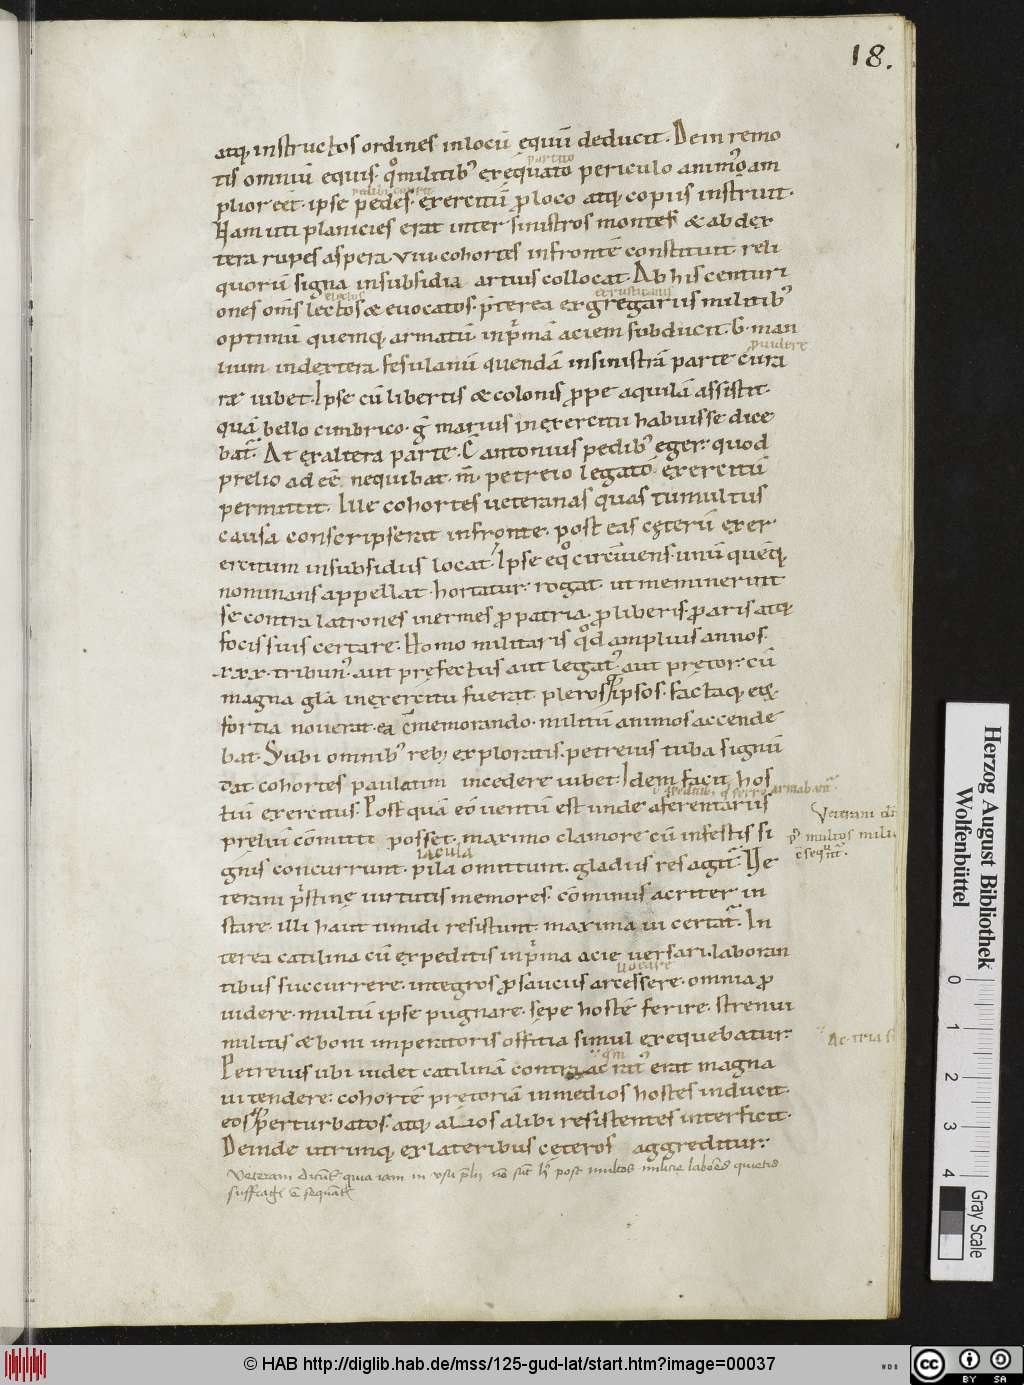 18.
atq; instructos ordines in locū ęquū deducit. Dein remo
tis omniū equis. q̊ militib' exęquato periculo animus am
plior eēt. ipse pedes exercitū p loco atq; copiis instruit.
Nam uti planicies erat inter sinistros montes & ab dex
tera rupes aspera. VIII. cohortes in frontē constituit. reli
quorū signa in subsidia artius collocat. Ab his centuri
ones om̄s lectos & euocatos. p̄terea ex gregariis militib'
optimū quemq; armatū in p'mā aciem subducit. G. man
lium in dextera. fesulanū quendā in sinistrā parte cura
re iubet. Ipse cū libertis & colonis prope aquilā assistit.
quā bello cimbrico. g̃ marius in exercitu habuisse dice
bat̃. At ex altera parte. C̃ antonius pedib' eger. quod
prelio adeē nequibat. m̄. petreio legato. exercitū
permittit. Ille cohortes ueteranas quas tumultus
causa conscripserat in fronte. post eas cęterū exer
ercitum in subsidiis locat. Ipse eq̊ circūiens. unū quēq;
nominans appellat. hortatur. rogat. ut meminerint
se contra latrones inermes p patria. p liberis. p aris atq;
focis suis certare. Homo militaris q̊d amplius annos
xxx. tribun' aut pręfectus aut legat' aut pretor. cū
magna glā in exercitu fuerat. pleros ipsos. factaq; eoꝝ
fortia nouerat. ea cōmemorando. militū animos accende
bat. S; ubi omnib' reb; exploratis. petreius tuba signū
dat. cohortes paulatim incedere iubet. Idem facit hos
tiū exercitus. Post quā eo uentum est unde a ferentariis
preliū cōmitti posset. maximo clamore cū infestis si
gnis concurrunt. pila omittunt. gladiis res agit̃. Ve
terani p'stinę uirtutis memores. cōminus acriter in
stare. illi haut timidi resistunt. maxima ui certat̃. In
terea catilina cū expeditis in p'ma acie uersari. laboran
tibus succurrere. integros p sauciis arcessere. omnia p
uidere. multū ipse pugnare. sepe hostē ferire. strenui
militis & boni imperatoris offitia simul exequebatur.
Petreius ubi uidet catilinā contra ac rat' erat magna
ui tendere. cohortē pretoriā in medios hostes inducit.
eos pturbatos. atq; alios alibi resistentes interficit.
Deinde utrimq; ex lateribus ceteros aggreditur.
partito
electos
puidere
iacula
uocare
Herzog August Bibliothek
Wolfenbüttel
0 1 2 3 4
Gray Scale
© HAB http://diglib.hab.de/mss/125-gud-lat/start.htm?image=00037
WDB
cc BY SA